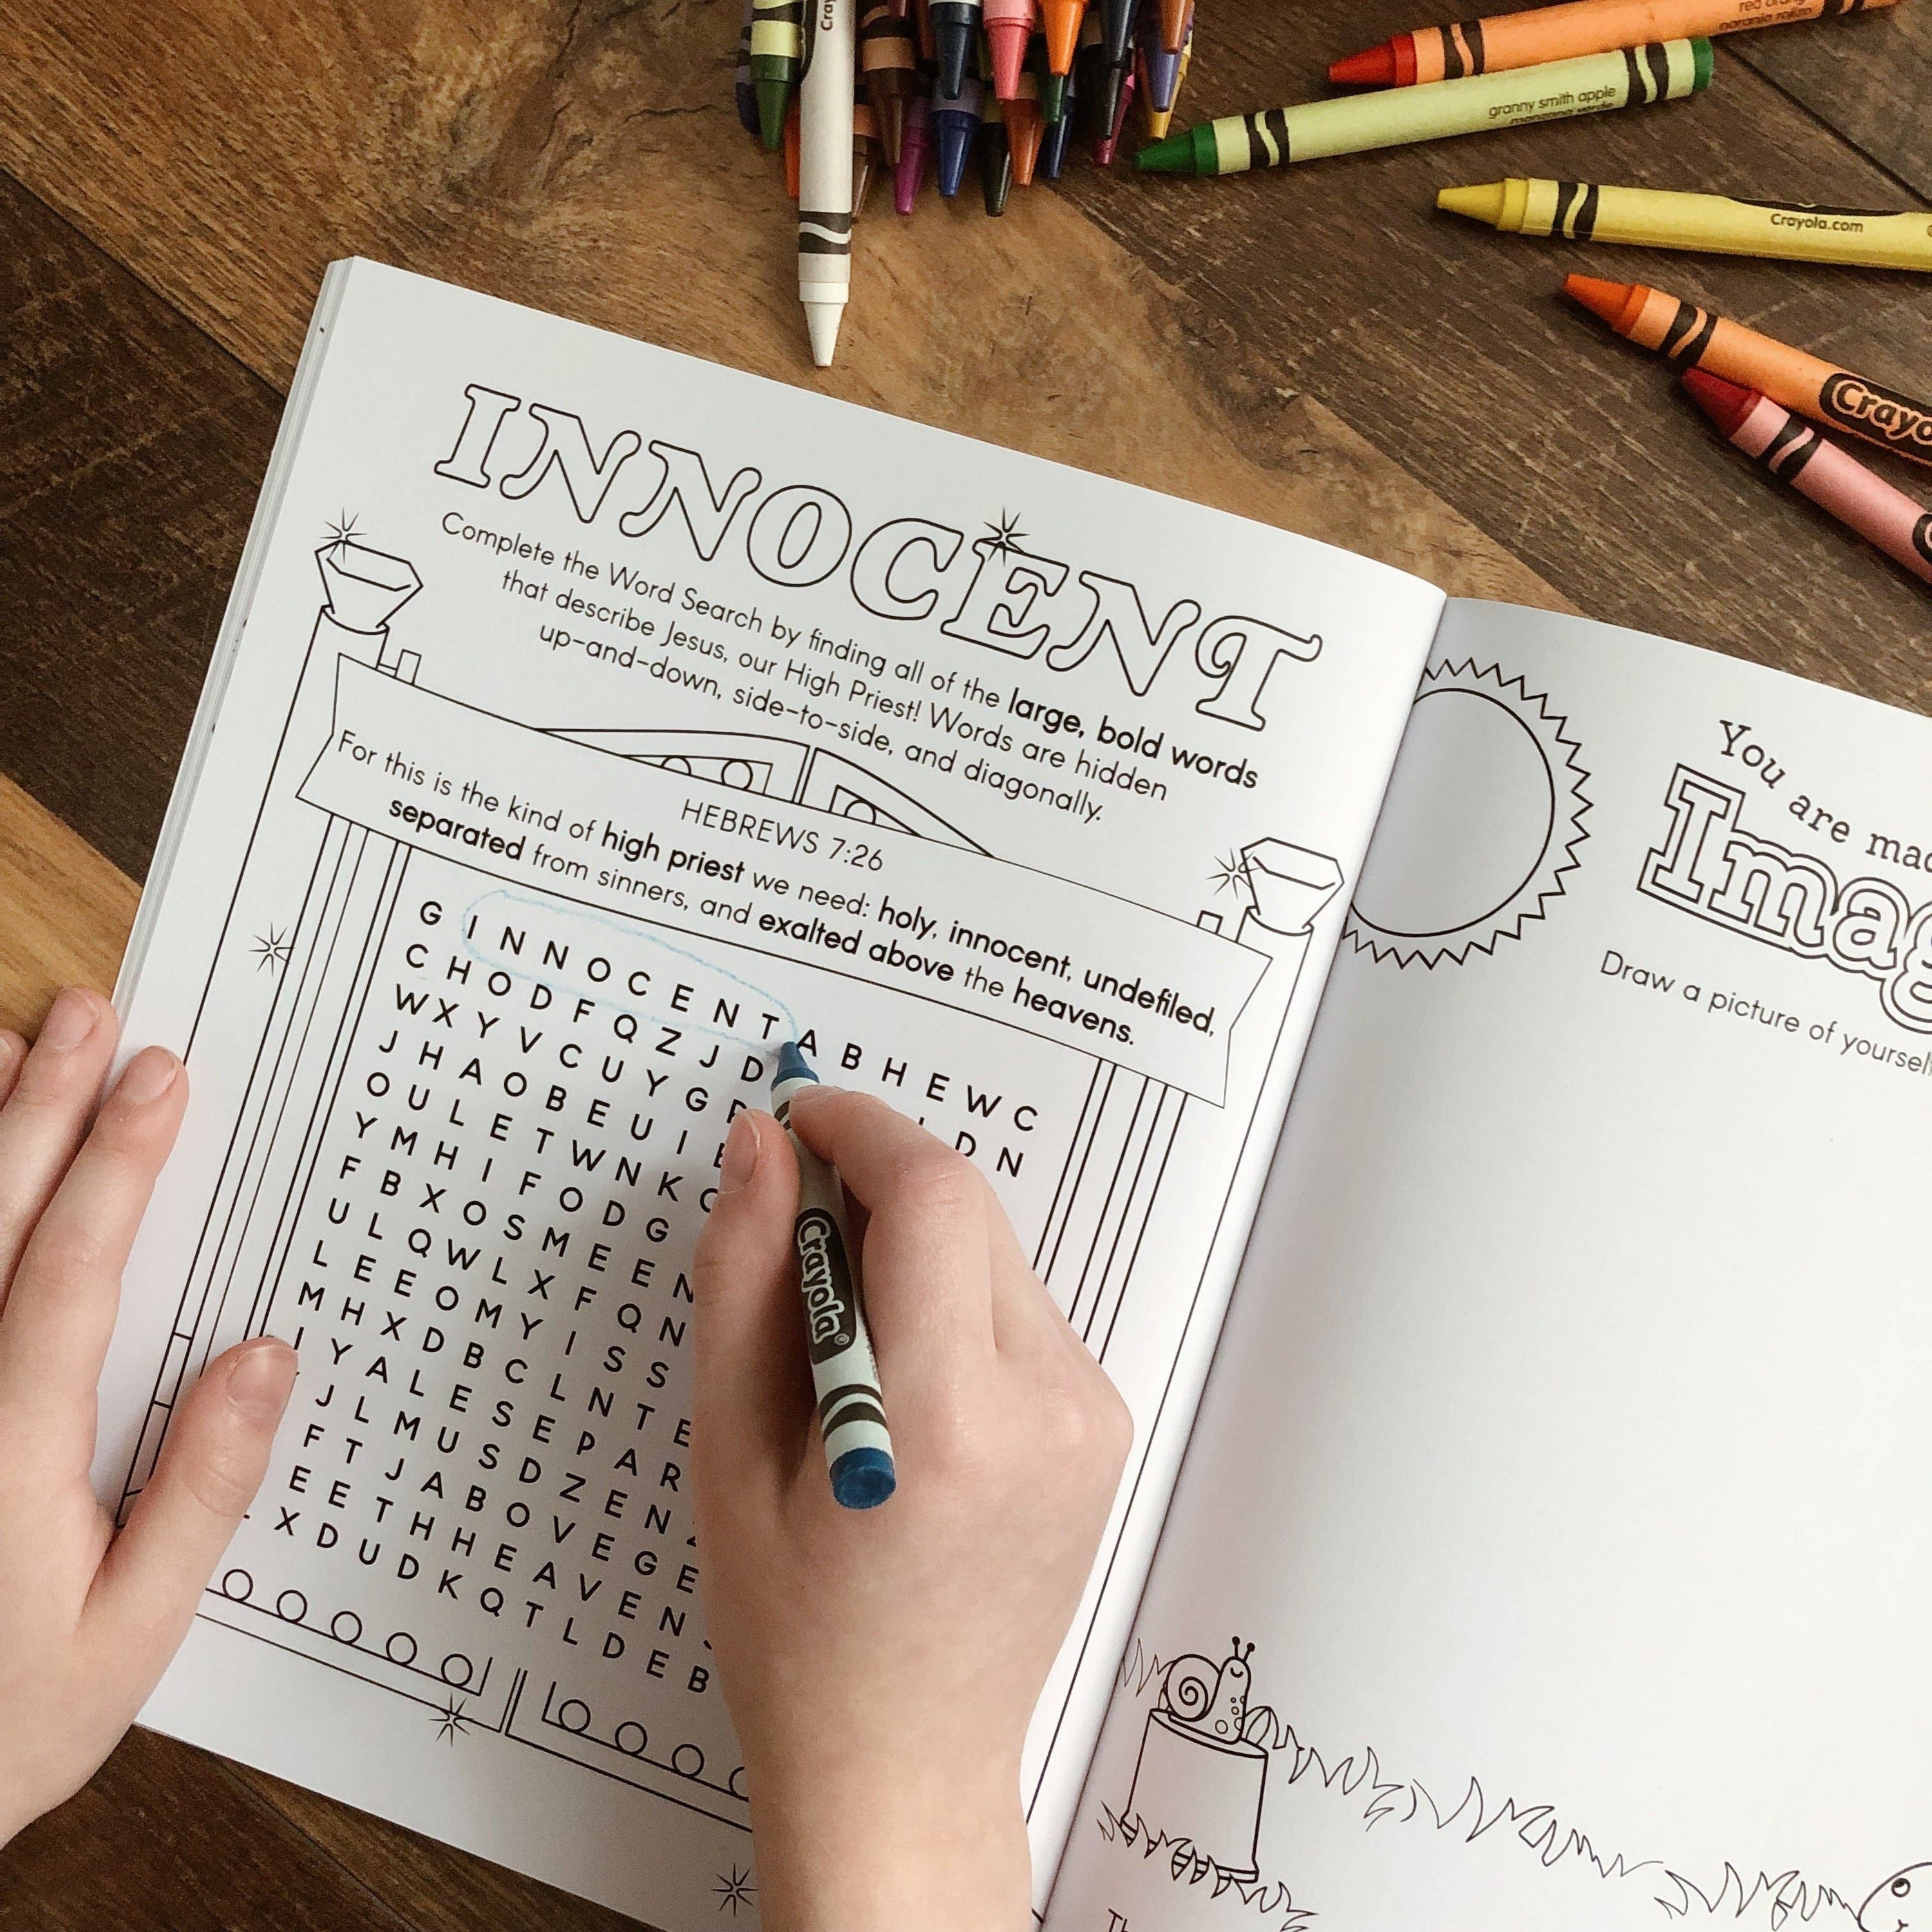 Cray
red orange
naranja rojizo
granny smith apple
manzana verde
Crayola.com
Crayo
INNOCENT
Complete the Word Search by finding all of the large, bold words
that describe Jesus, our High Priest! Words are hidden
up-and-down, side-to-side, and diagonally.
HEBREWS 7:26
For this is the kind of high priest we need: holy, innocent, undefiled,
separated from sinners, and exalted above the heavens.
G I N N O C E N T A B H E W C
C H O D F Q Z J D D N
W X Y V C U Y G
J H A O B E U I
O U L E T W N K
Y M H I F O D G
F B X O S M E E N
U L Q W L X F Q N
L E E O M Y I S S
M H X D B C L N T E
I Y A L E S E P A R
J L M U S D Z E N
F T J A B O V E G E
E E T H H E A V E N
X D U D K Q T L D E B
Crayola®
You are mad
Imag
Draw a picture of yoursel
Th